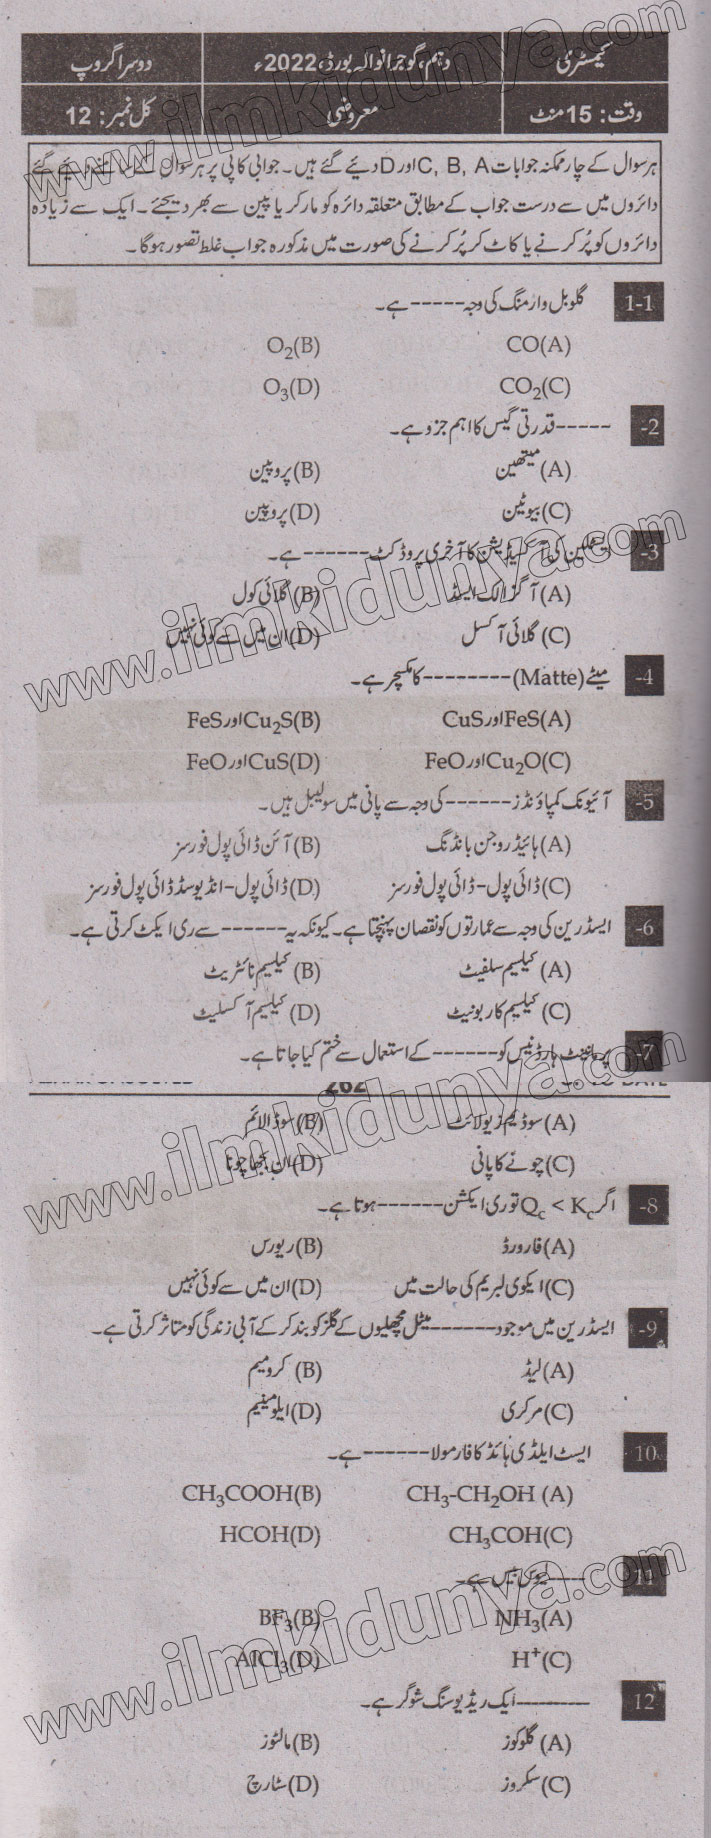 کیمسٹری دہم، گوجرانوالہ بورڈ، 2022ء دوسرا گروپ
وقت: 15 منٹ معروضی کل نمبر: 12
ہر سوال کے چار ممکنہ جوابات C, B, A اور D دیئے گئے ہیں۔ جوابی کاپی پر ہر سوال کے سامنے دیئے گئے
دائروں میں سے درست جواب کے مطابق متعلقہ دائرہ کو مارکر یا پین سے بھر دیجئے۔ ایک سے زیادہ
دائروں کو پُر کرنے یا کاٹ کر پُر کرنے کی صورت میں مذکورہ جواب غلط تصور ہوگا۔
1-1 گلوبل وارمنگ کی وجہ ----- ہے۔
CO(A) O₂(B)
CO₂(C) O₃(D)
-2 ----- قدرتی گیس کا اہم جزو ہے۔
(A) میتھین (B) پروپین
(C) بیوٹین (D) پروپین
-3 ایتھلین کی آکسیڈیشن کا آخری پروڈکٹ ------ ہے۔
(A) آگزالک ایسڈ (B) گلائی کول
(C) گلائی آکسل (D) ان میں سے کوئی نہیں
-4 میٹے (Matte) -------- کا مکسچر ہے۔
FeS(A) اور CuS Cu₂S(B) اور FeS
Cu₂O(C) اور FeO CuS(D) اور FeO
-5 آئیونک کمپاؤنڈز ------ کی وجہ سے پانی میں سولیبل ہیں۔
(A) ہائیڈروجن بانڈنگ (B) آئن ڈائی پول فورسز
(C) ڈائی پول - ڈائی پول فورسز (D) ڈائی پول - انڈیوسڈ ڈائی پول فورسز
-6 ایسڈ رین کی وجہ سے عمارتوں کو نقصان پہنچتا ہے۔ کیونکہ یہ ------ سے ری ایکٹ کرتی ہے۔
(A) کیلسیم سلفیٹ (B) کیلسیم نائٹریٹ
(C) کیلسیم کاربونیٹ (D) کیلسیم آکسلیٹ
-7 پرمانینٹ ہارڈنیس کو ------ کے استعمال سے ختم کیا جاتا ہے۔
262
(A) سوڈیم زیولائٹ (B) سوڈا لائم
(C) چونے کا پانی (D) ان بجھا چونا
-8 اگر Qc < Kc تو ری ایکشن ------ ہوتا ہے۔
(A) فارورڈ (B) ریورس
(C) ایکوی لبریم کی حالت میں (D) ان میں سے کوئی نہیں
-9 ایسڈ رین میں موجود ------ میٹل مچھلیوں کے گلز کو بند کر کے آبی زندگی کو متاثر کرتی ہے۔
(A) لیڈ (B) کرومیم
(C) مرکری (D) ایلومینیم
10 ایسٹ ایلڈی ہائڈ کا فارمولا ------ ہے۔
CH₃-CH₂OH (A) CH₃COOH(B)
CH₃COH(C) HCOH(D)
11 ---- لیوس بیس ہے۔
NH₃(A) BF₃(B)
H⁺(C) AlCl₃(D)
12 -------- ایک ریڈیوسنگ شوگر ہے۔
(A) گلوکوز (B) مالٹوز
(C) سکروز (D) سٹارچ
www.ilmkidunya.com